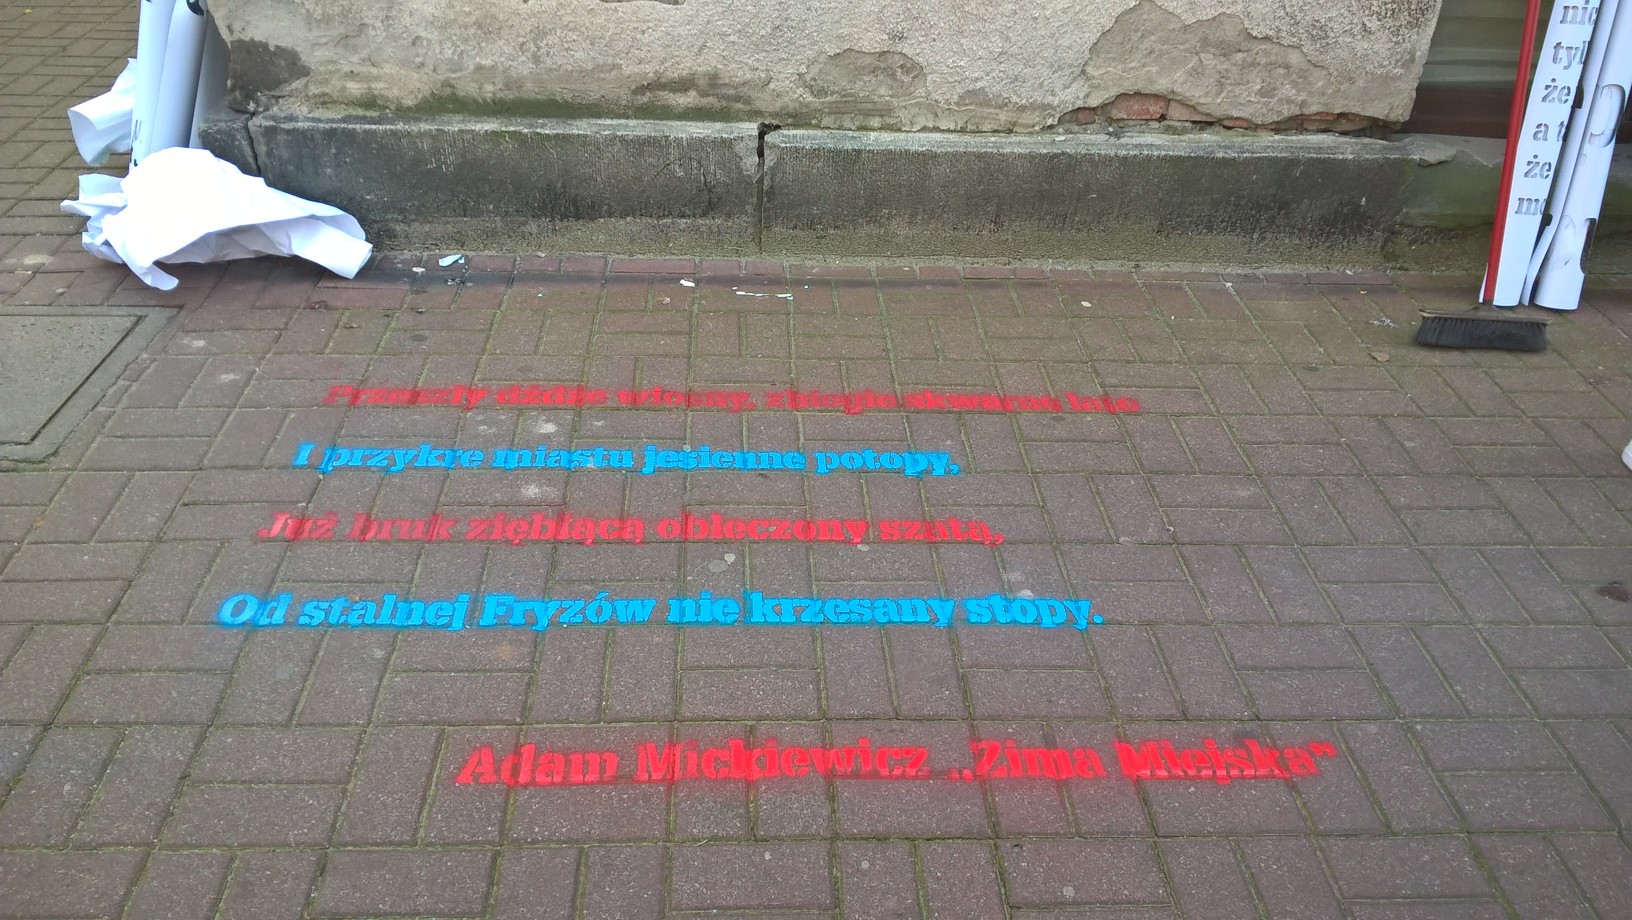 nic
tyl
że
a t
że
Przeszły dżdże wiosny, zbiegło skwarne lato
I przykre miastu jesienne potopy,
Już bruk ziębiącą obleczony szatą,
Od stalnej Fryzów nie krzesany stopy.
Adam Mickiewicz „Zima Miejska”